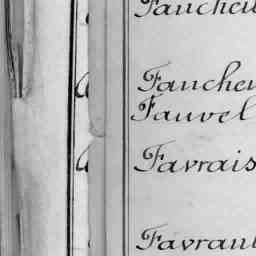 Faucheu
Faucheu
Fauvel
Favrais
Favraul